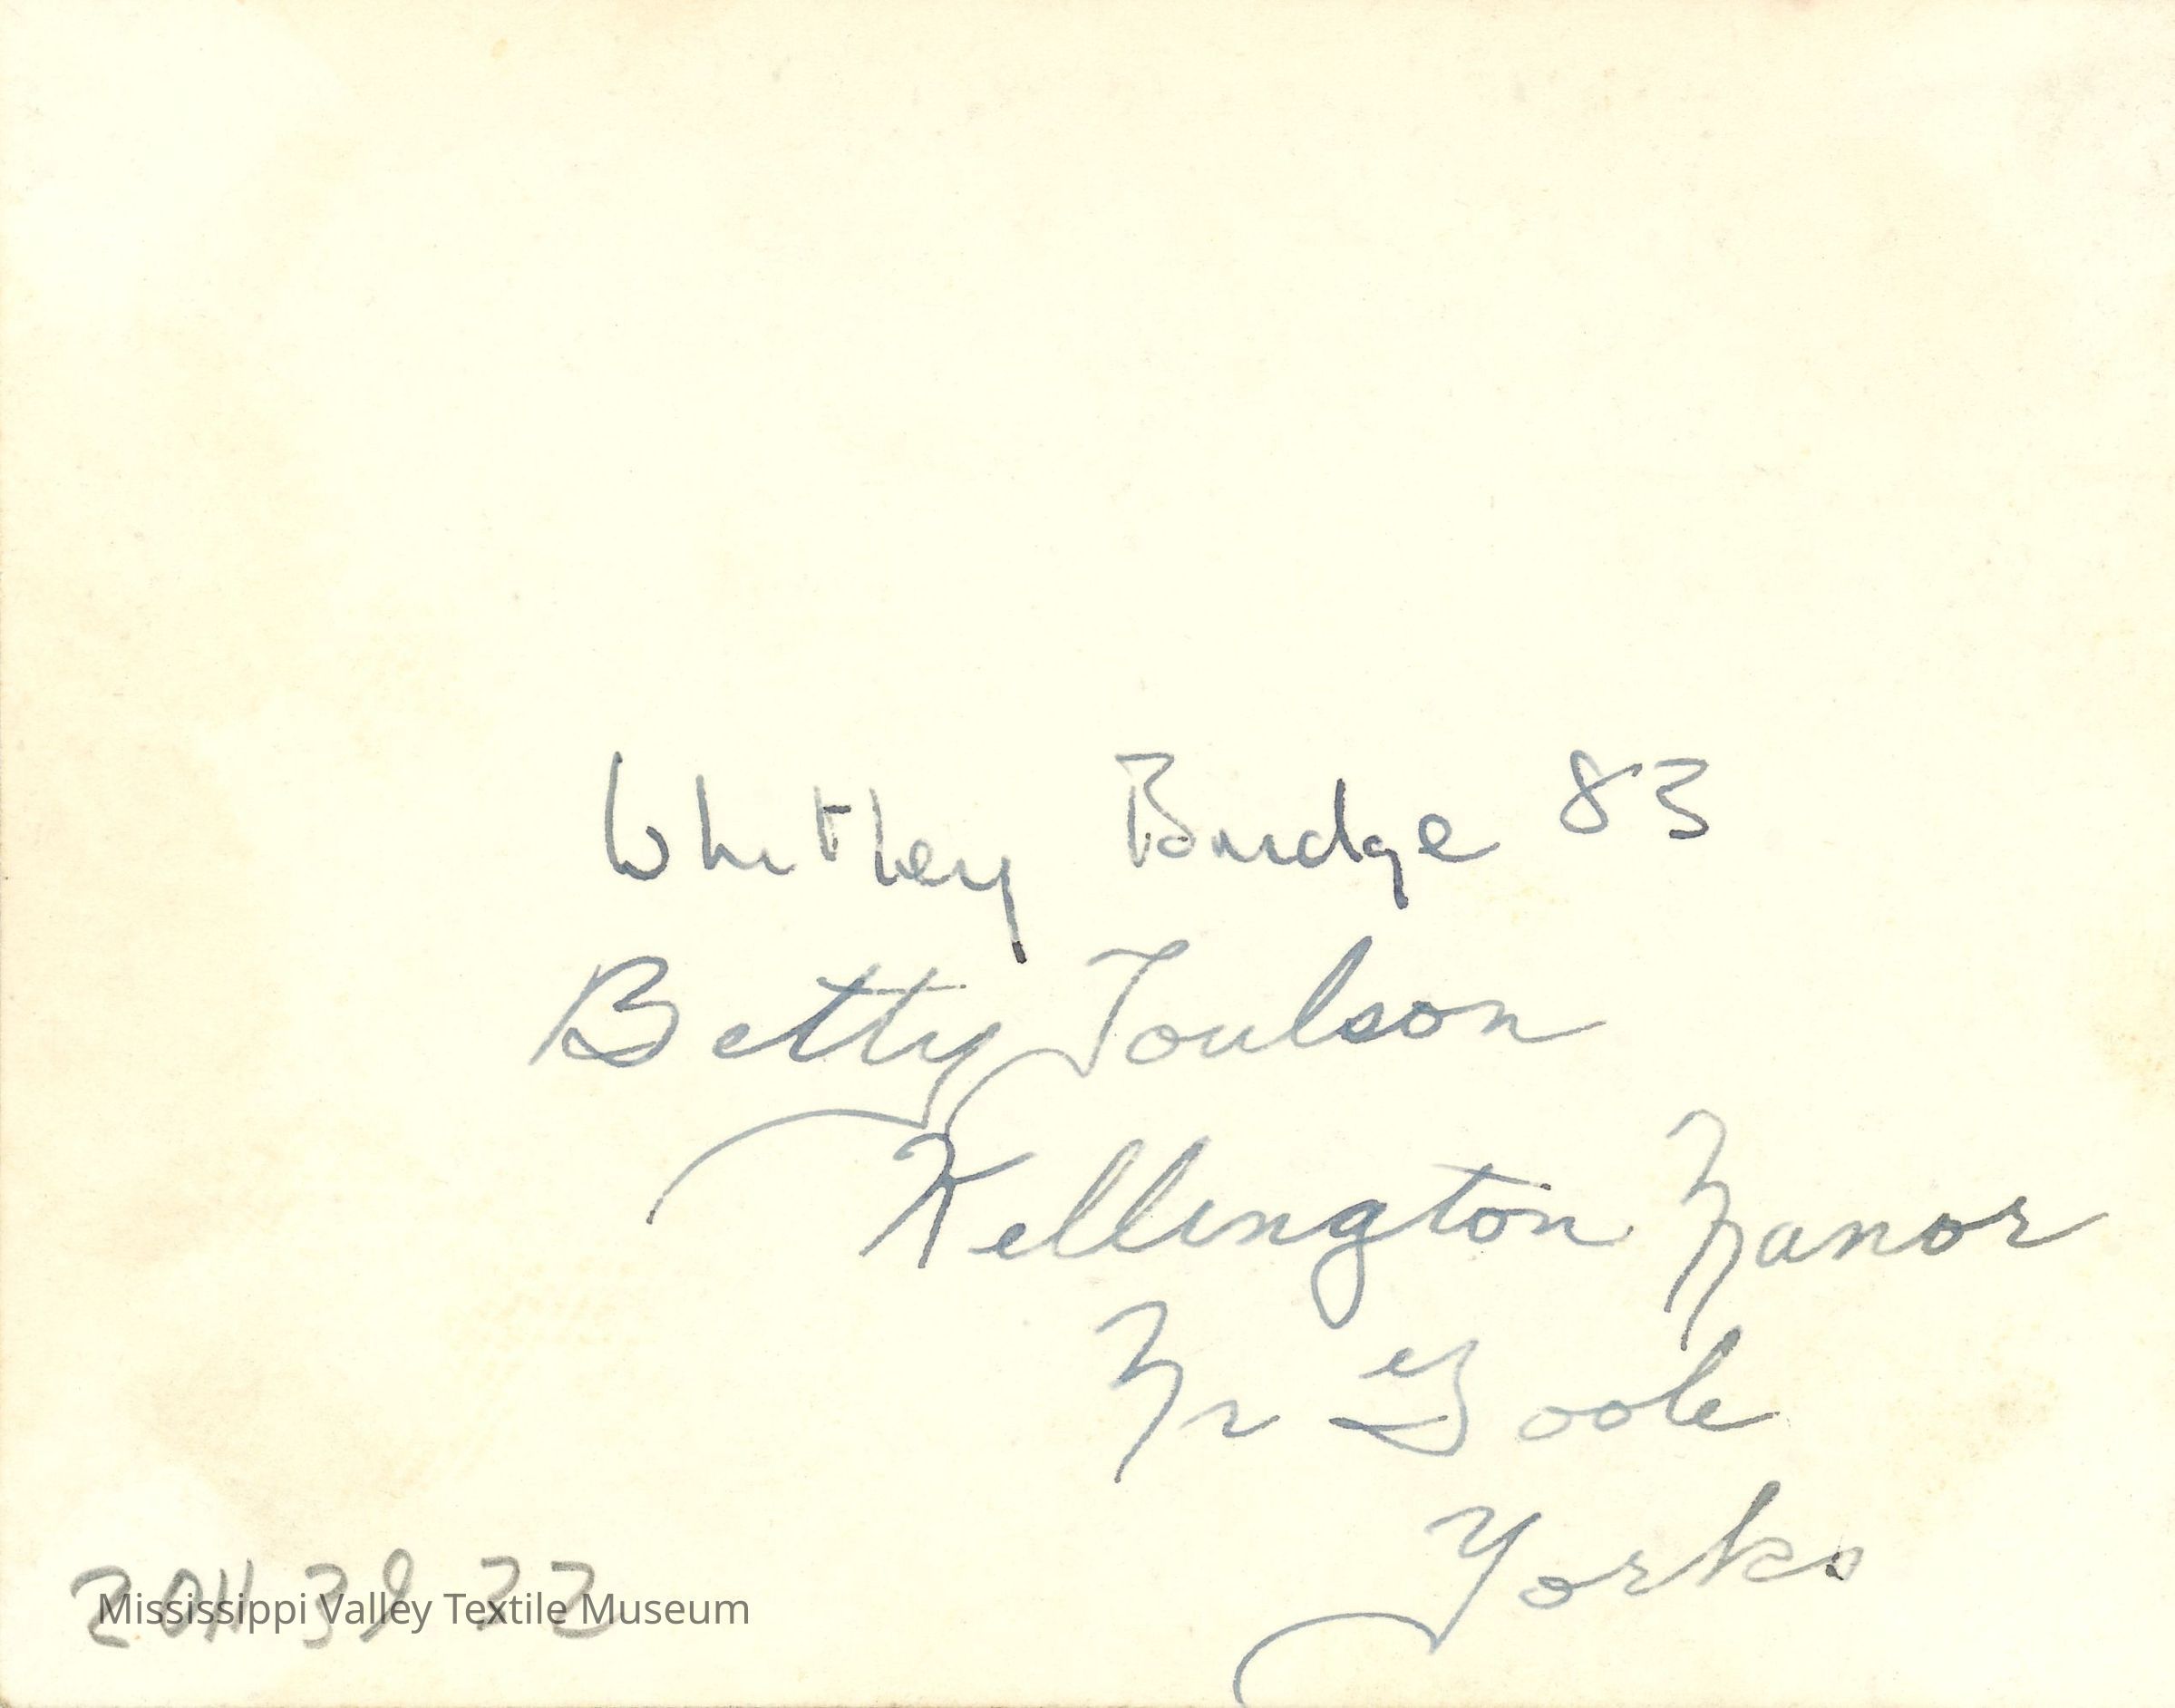 Whitley Bridge 83
Betty Toulson
Kellington Manor
Nr Goole
Yorks
2011 39 22
Mississippi Valley Textile Museum